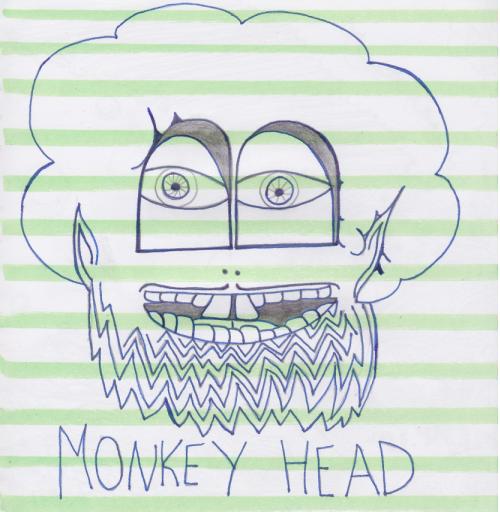 MONKEY HEAD